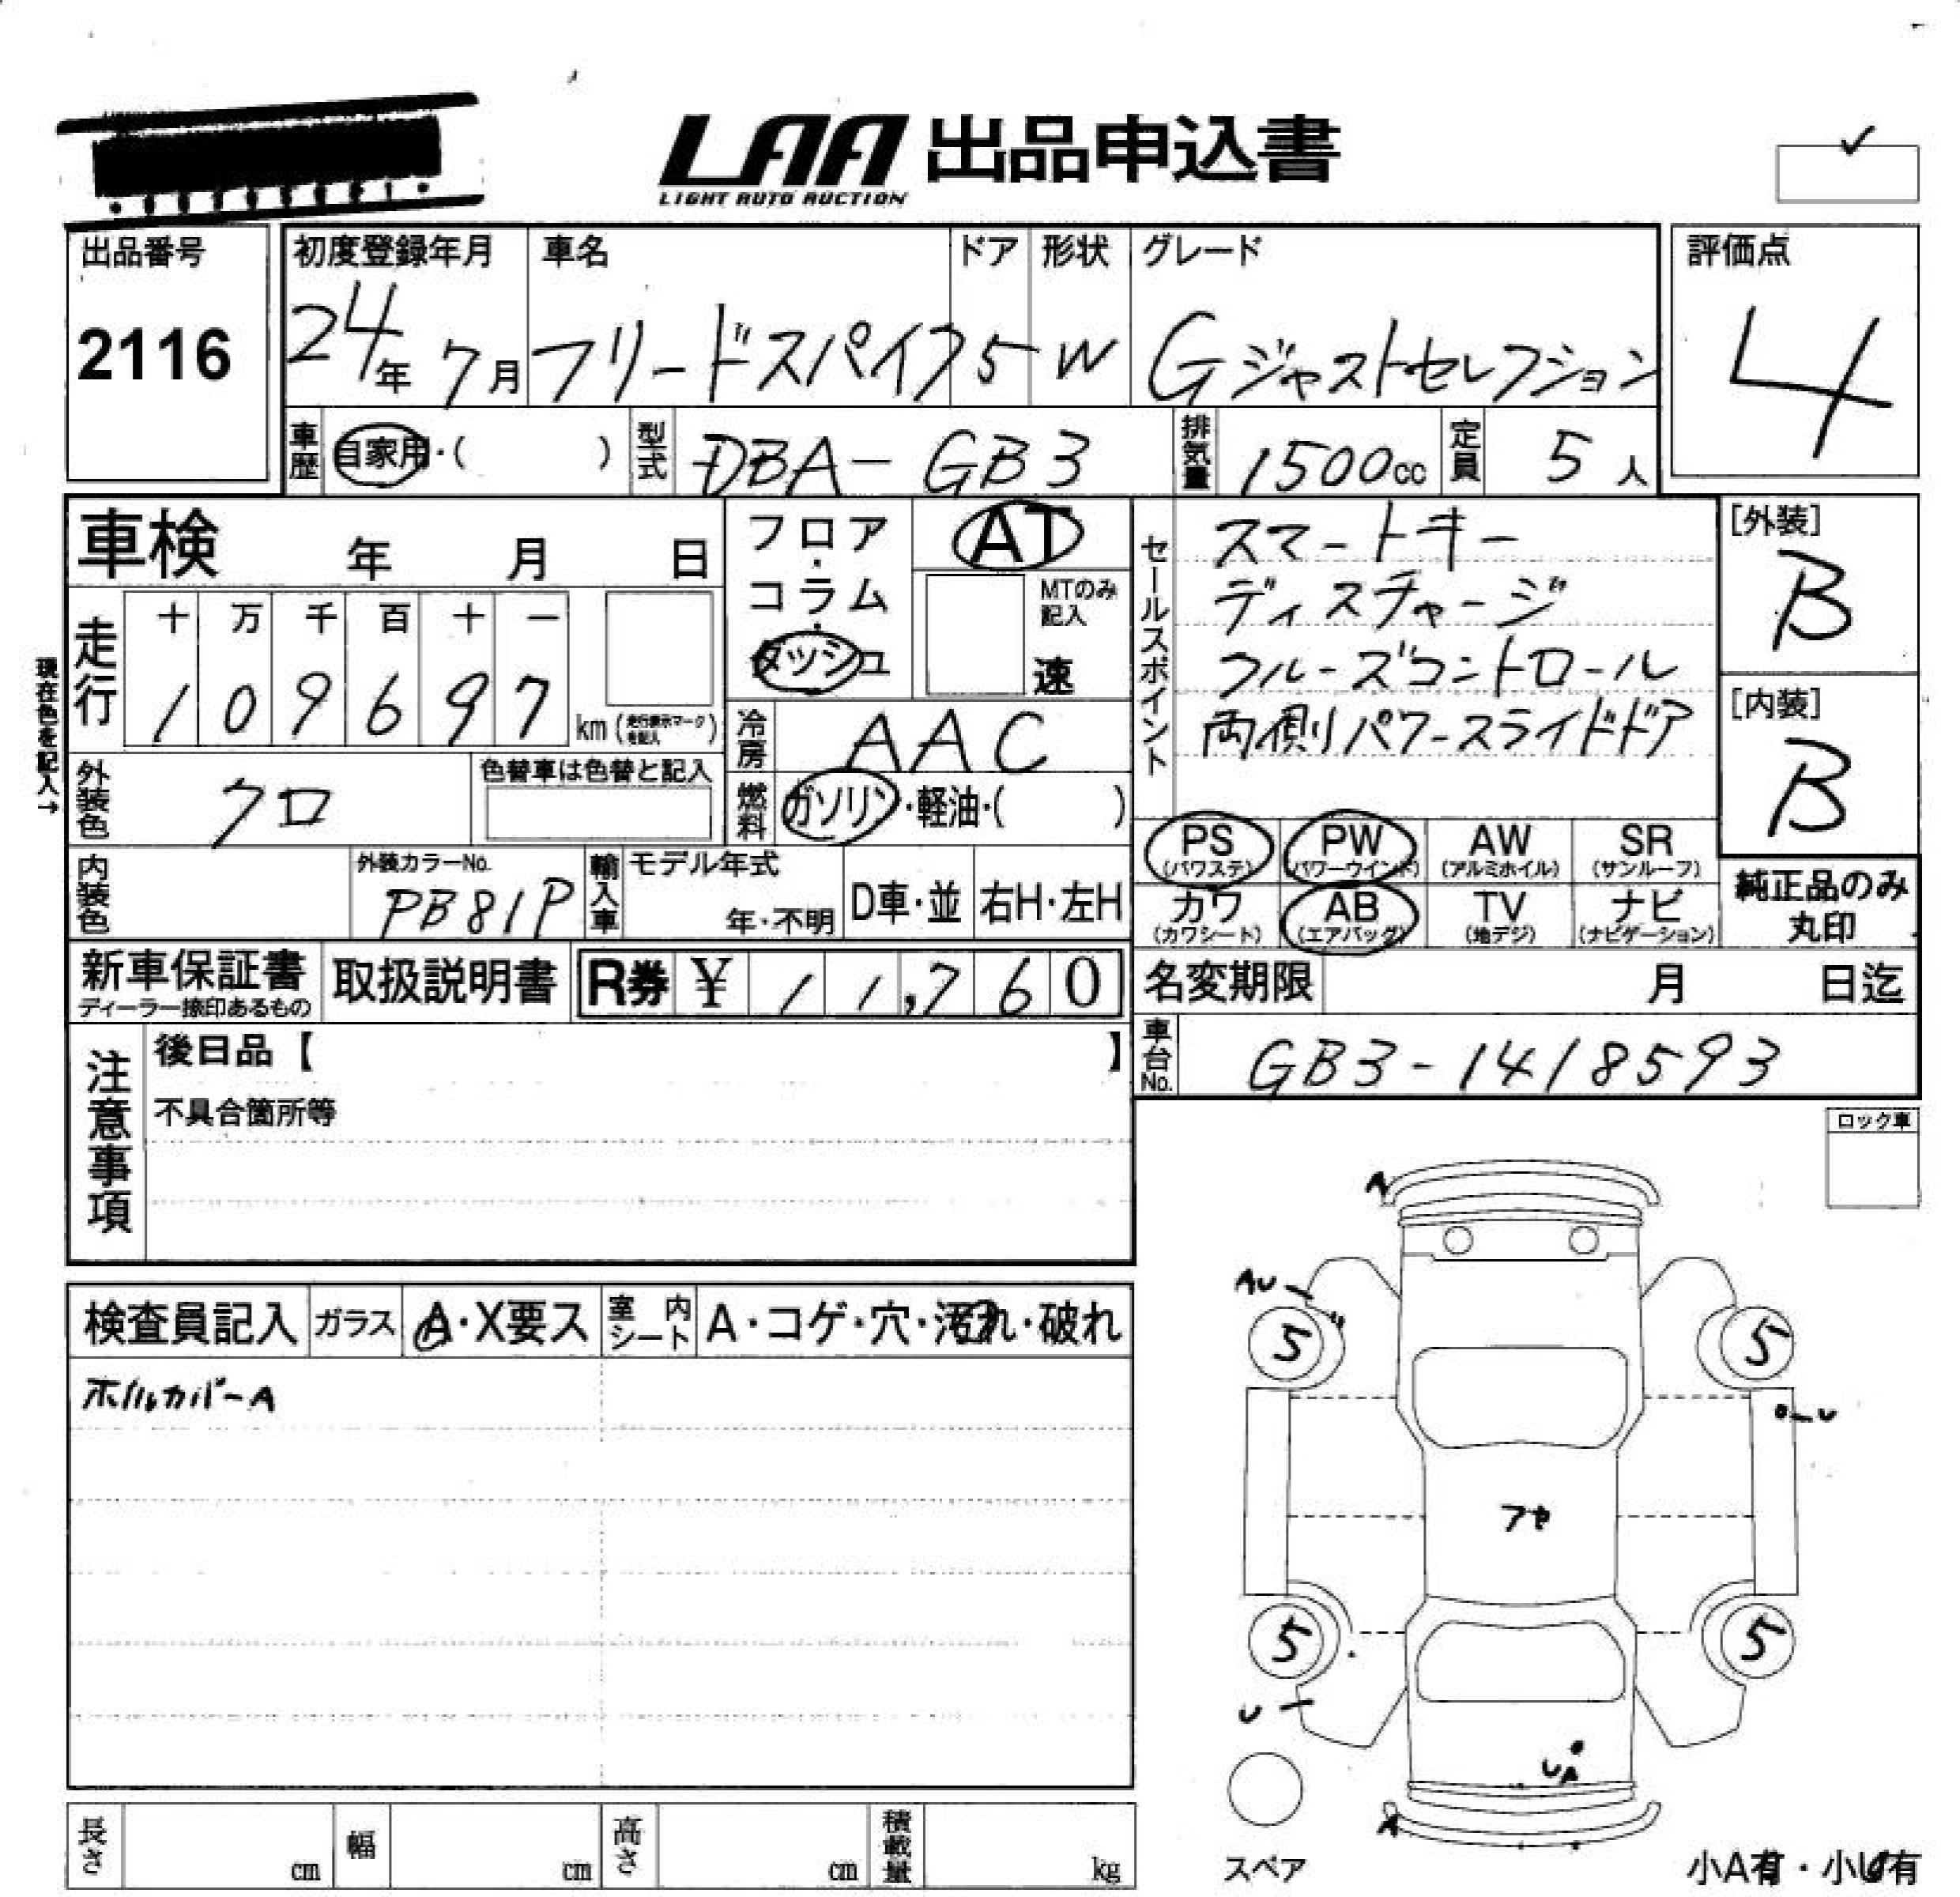 LAA 出品申込書
LIGHT AUTO AUCTION
出品番号
2116
初度登録年月
24年 7月
車名
フリードスパイク
ドア
5
形状
W
グレード
Gジャストセレクション
評価点
4
車歴 自家用・( )
型式 DBA-GB3
排気量 1500cc
定員 5人
車検 年 月 日
フロア・コラム・ダッシュ
AT
MTのみ記入
速
セールスポイント
スマートキー
ディスチャージ
クルーズコントロール
両側パワースライドドア
[外装]
B
[内装]
B
現在色を記入→
走行
十 万 千 百 十 一
1 0 9 6 9 7 km (走行表示マークを記入)
冷房 AAC
外装色 クロ
色替車は色替と記入
燃料 ガソリン・軽油・( )
PS (パワステ)
PW (パワーウインド)
AW (アルミホイル)
SR (サンルーフ)
カワ (カワシート)
AB (エアバッグ)
TV (地デジ)
ナビ (ナビゲーション)
純正品のみ
丸印
内装色
外装カラーNo.
PB81P
輸入車
モデル年式
年・不明
D車・並
右H・左H
新車保証書
ディーラー捺印あるもの
取扱説明書
R券 ¥ 11,760
名変期限 月 日迄
車台No. GB3-1418593
注意事項
後日品【 】
不具合箇所等
ロック車
検査員記入
ガラス A・X要ス
室内シート A・コゲ・穴・汚れ・破れ
ホイルカバーA
A
AU
5
5
U
フセ
5
5
U
UA
A
スペア
小A有・小U有
長さ cm
幅 cm
高さ cm
積載量 kg